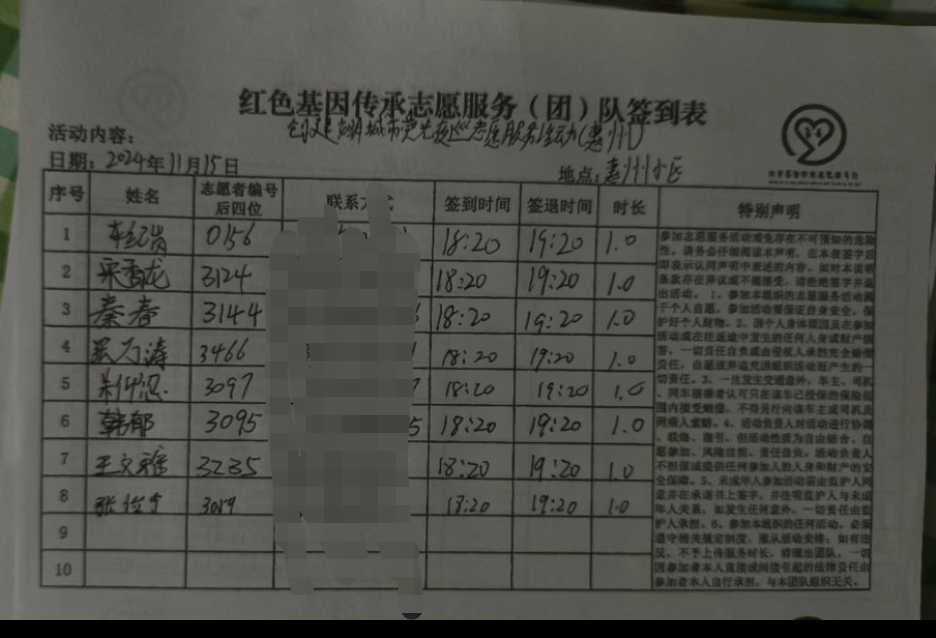 红色基因传承志愿服务（团）队签到表
活动内容：创建文明城市荧光夜巡志愿服务活动(惠州)
日期：2024年11月15日
地点：惠州小区
序号 姓名 志愿者编号后四位 联系方式 签到时间 签退时间 时长 特别声明
1 0156 18:20 19:20 1.0
2 3124 18:20 19:20 1.0
3 秦春 3144 18:20 19:20 1.0
4 3466 18:20 19:20 1.0
5 3097 18:20 19:20 1.0
6 韩郁 3095 5 18:20 19:20 1.0
7 王文雅 3235 18:20 19:20 1.0
8 18:20 19:20 1.0
9
10
参加志愿服务活动难免存在不可预知的危险
性。请务必仔细阅读本声明，在本表签字后
即表示认同声明中表述的内容。如对本说明
条款存在异议或不能接受，请拒绝签字并退
出活动。1、参加本组织的志愿服务活动属
于个人自愿，参加活动要保证自身安全，保
护好个人财物。2、因个人身体原因及在参加
活动或在往返途中发生的任何人身或财产损
害，一切责任自负或由侵权人承担完全赔偿
责任，自愿放弃追究因组织活动而产生的一
切责任。3、一旦发生交通意外，车主、司机
、同车搭乘者认可只在该车已投保的保险范
围内接受赔偿，不得另行向该车主或司机及
同乘人索赔。4、活动负责人对活动进行协调
、联络、指引，但活动性质为自由结合、自
愿参加、风险自担、责任自负。活动负责人
不担保或提供任何参加人的人身和财产的安
全保障。5、未成年人参加活动需由监护人同
意并在承诺书上签字，并注明监护人与未成
年人关系，如发生任何意外，一切责任由监
护人承担。6、参加本组织的任何活动，必须
遵守相关规定制度，服从活动安排；如有违
反，不予上传服务时长，清理出团队，一切
因参加者本人直接或间接引起的法律责任由
参加者本人自行承担，与本团队组织无关。